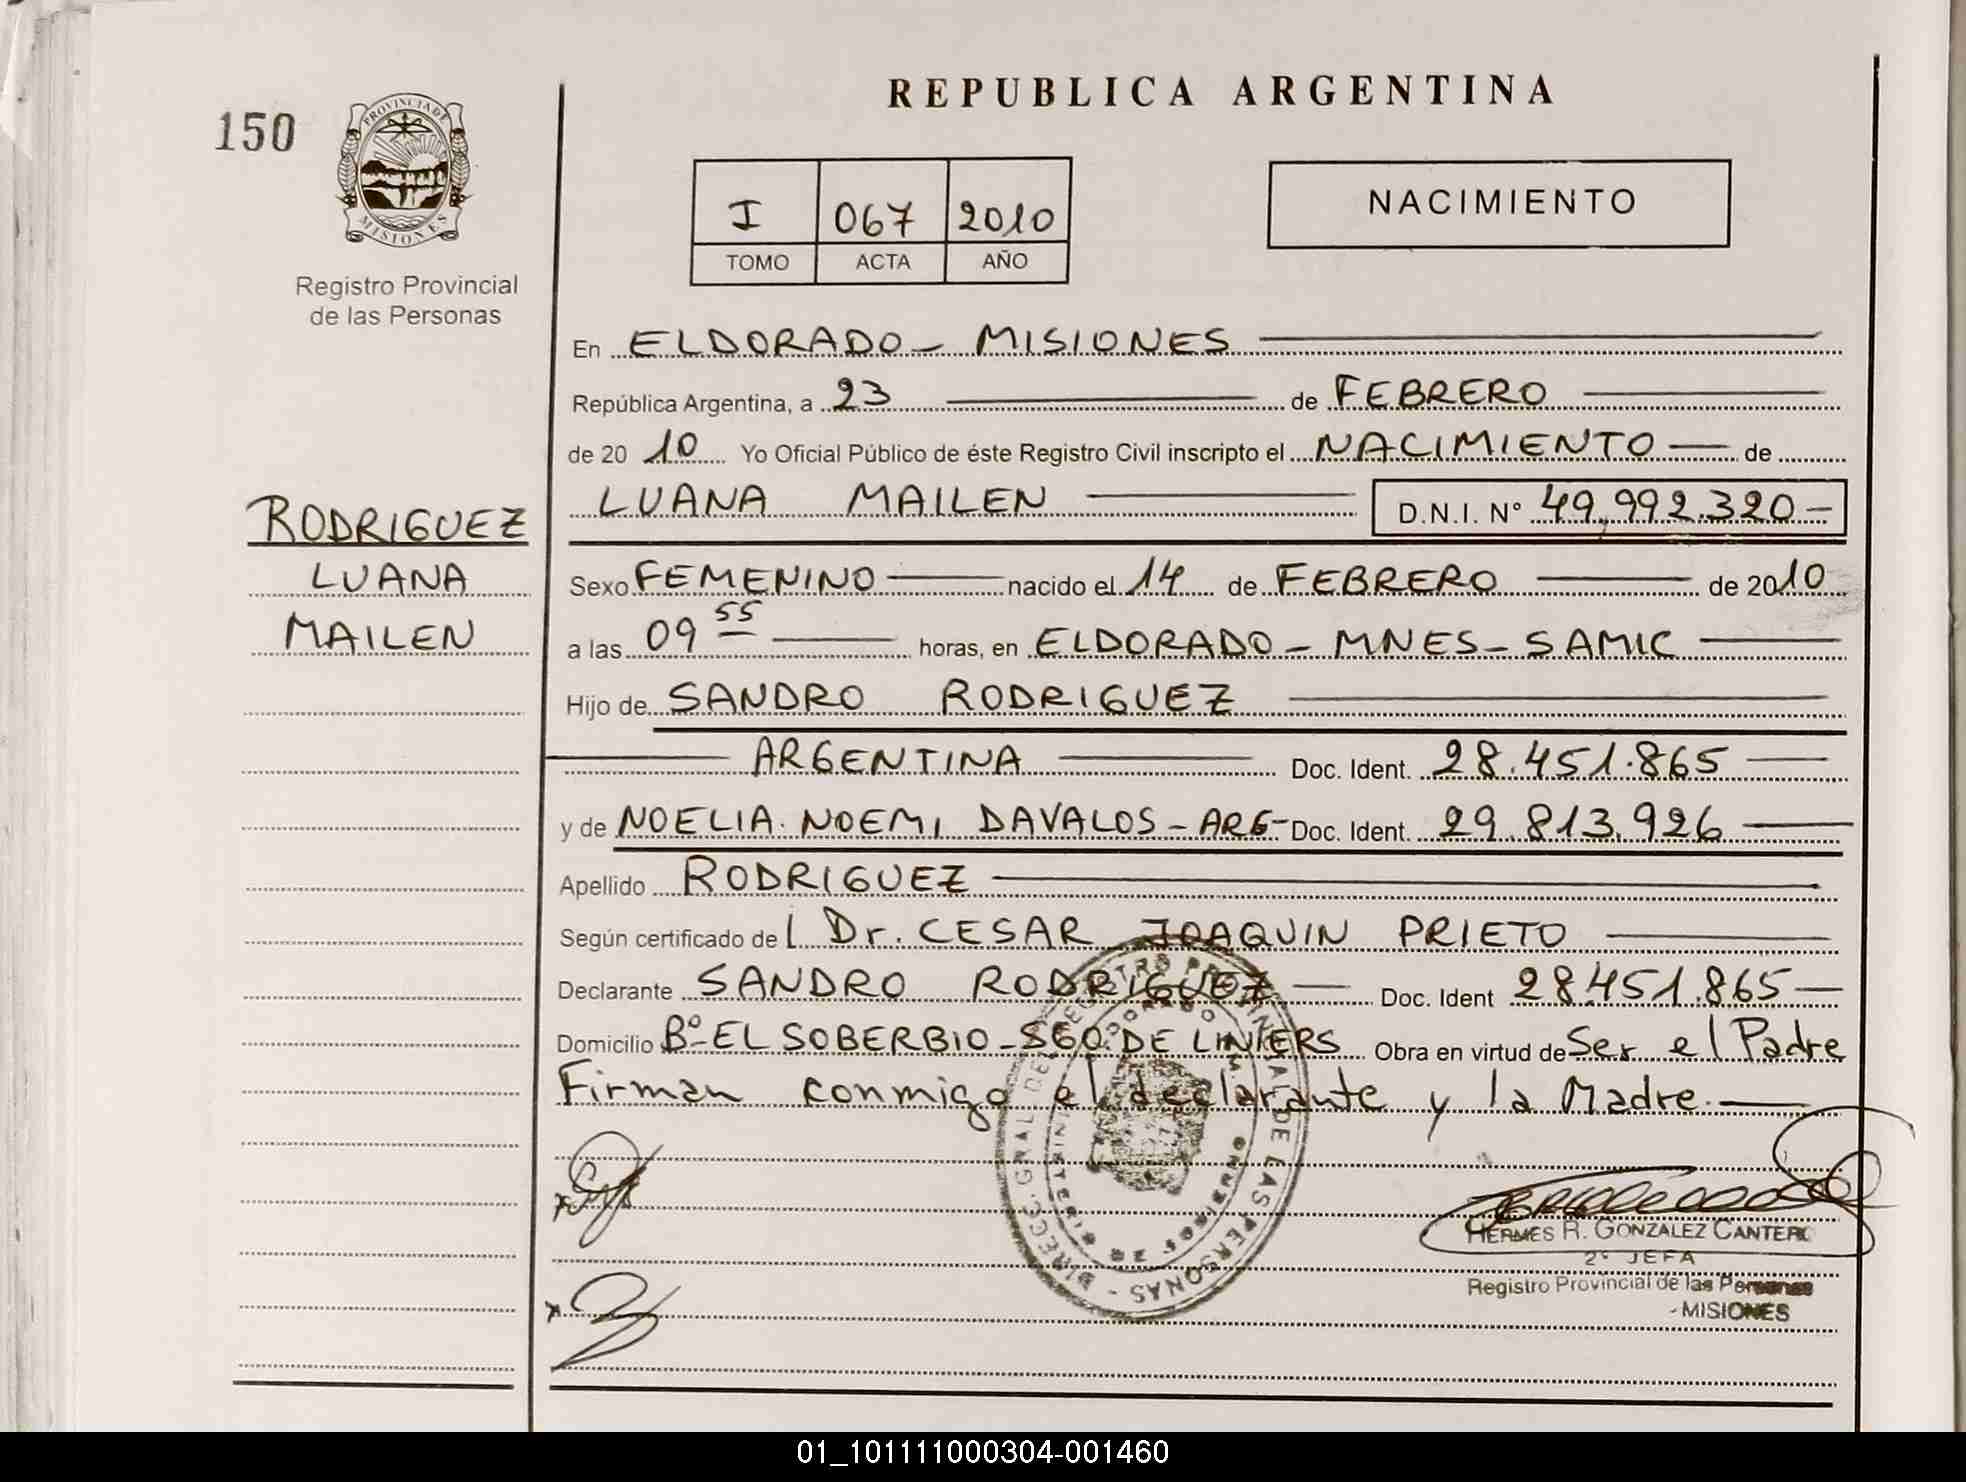 REPUBLICA ARGENTINA
150
PROVINCIA DE
MISIONES
Registro Provincial
de las Personas
I 067 2010
TOMO ACTA AÑO
NACIMIENTO
En ELDORADO - MISIONES
República Argentina, a 23 de FEBRERO
de 20 10 Yo Oficial Público de éste Registro Civil inscripto el NACIMIENTO de
LUANA MAILEN D.N.I. N° 49,992.320-
RODRIGUEZ
LUANA
MAILEN
Sexo FEMENINO nacido el 14 de FEBRERO de 2010
a las 09 55 horas, en ELDORADO - MNES - SAMIC
Hijo de SANDRO RODRIGUEZ
ARGENTINA Doc. Ident. 28.451.865
y de NOELIA NOEMI DAVALOS - ARG- Doc. Ident. 29.813.926
Apellido RODRIGUEZ
Según certificado de Dr. CESAR JOAQUIN PRIETO
Declarante SANDRO RODRIGUEZ Doc. Ident 28.451.865
Domicilio B° EL SOBERBIO - SGO. DE LINIERS Obra en virtud de Ser el Padre
Firman conmigo el declarante y la Madre.
HERMES R. GONZALEZ CANTERO
2° JEFA
Registro Provincial de las Personas
- MISIONES
01_101111000304-001460